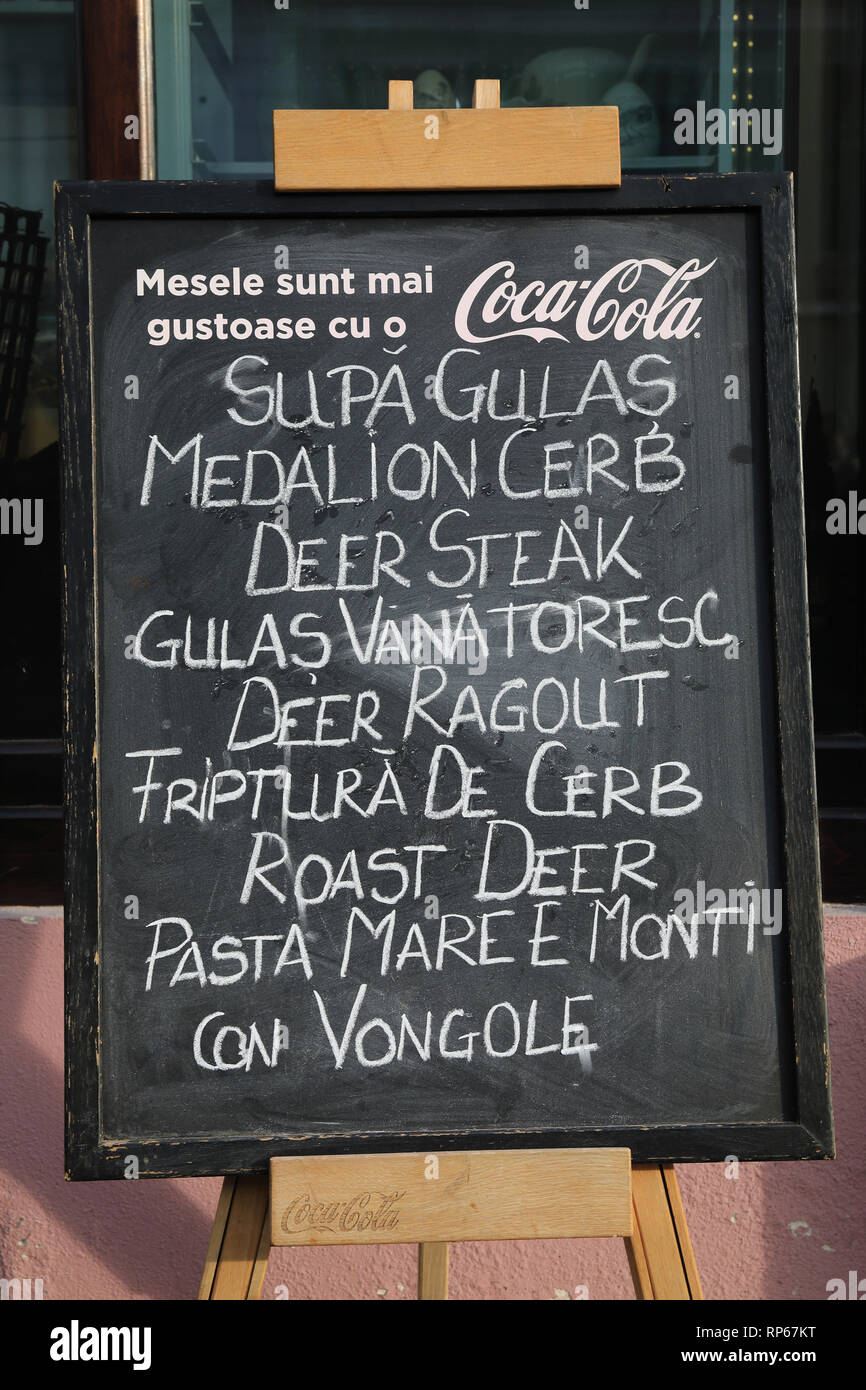 Mesele sunt mai
gustoase cu o Coca-Cola
SUPĂ GULAȘ
MEDALION CERB
DEER STEAK
GULAȘ VÂNĂTORESC
DEER RAGOUT
FRIPTURĂ DE CERB
ROAST DEER
PASTA MARE E MONTI
CON VONGOLE
Coca-Cola
a alamy
alamy
Image ID: RP67KT
www.alamy.com